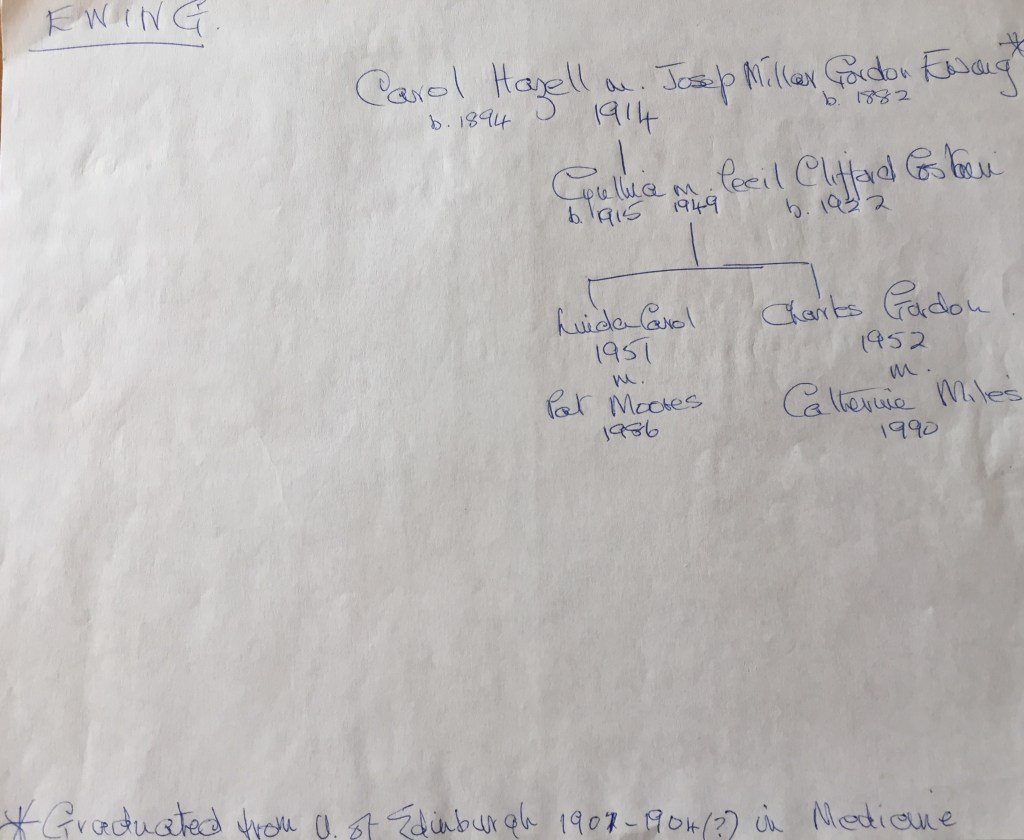 EWING.
Carol Hazell m. Josep Millar Gordon Ewing *
b. 1894 1914 b. 1882
Cynthia m. Cecil Clifford
b. 1915 1949 b. 1922
Linda Carol Charles Gordon
1951 1952
m. m.
Pat Moores Catherine Miles
1986 1990
* Graduated from U. of Edinburgh 1902-1904(?) in Medicine